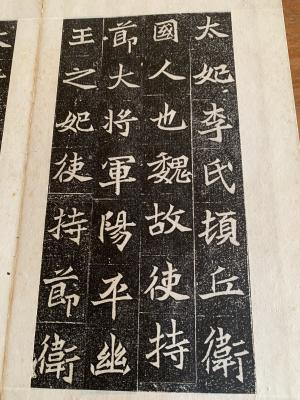 太妃李氏頓丘衛
國人也魏故使持
節大將軍陽平幽
王之妃使持節衛